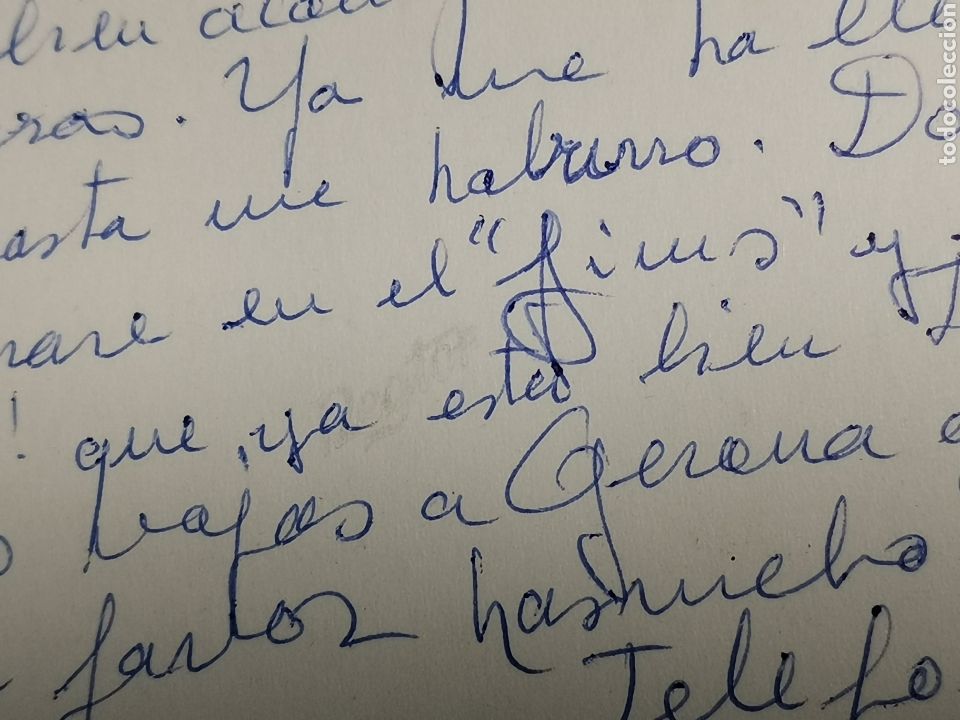 bien
ras. Ya me ha lle
asta me haburro. Do
rare en el "fims" y
! que ya está bien
vajas a Gerona
favor hasmucho
Telefo
todocoleccion